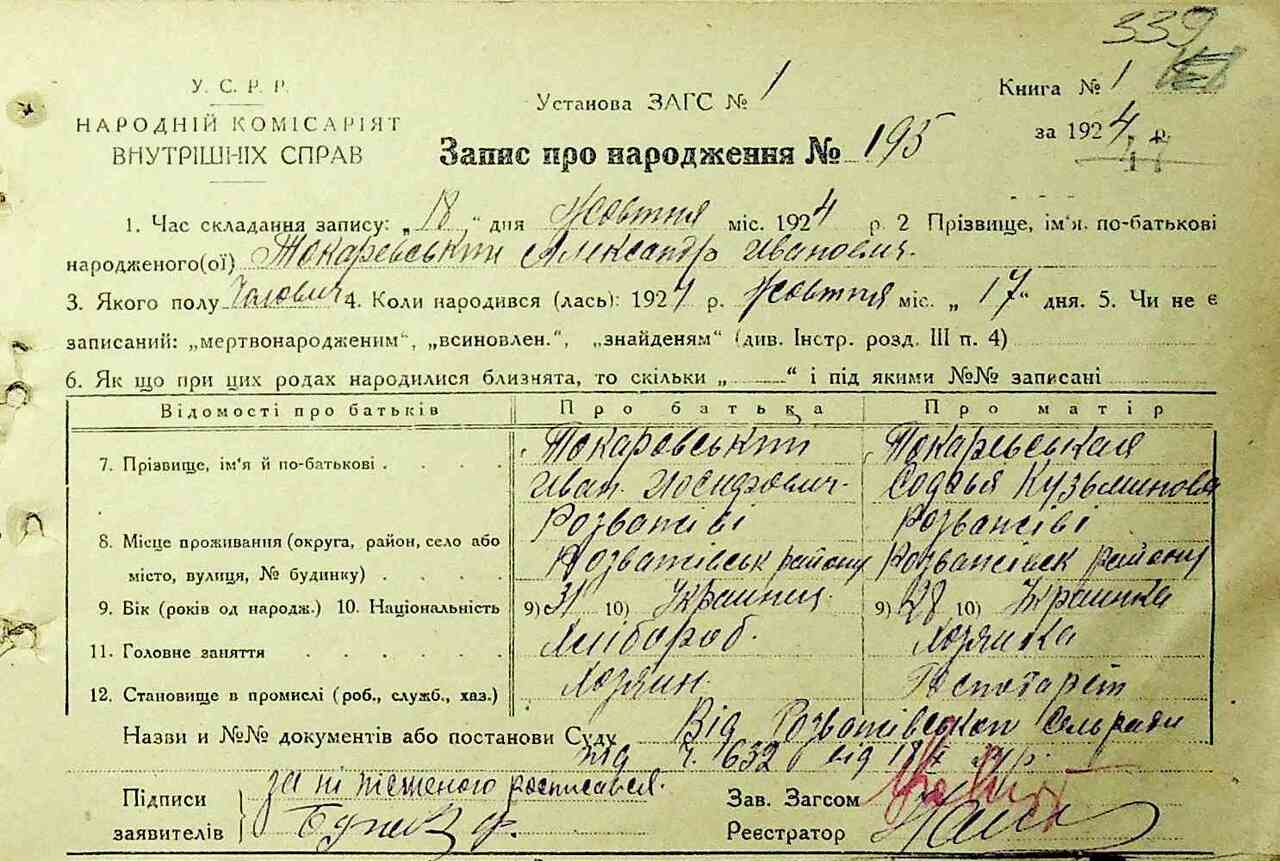 339
У. С. Р. Р.
НАРОДНІЙ КОМІСАРІЯТ
ВНУТРІШНІХ СПРАВ
Установа ЗАГС № 1
Книга № 1
за 1924 р.
Запис про народження № 195
1. Час складання запису: „18“ дня Жовтня міс. 1924 р. 2 Прізвище, ім'я. по-батькові
народженого(ої) Токаревський Александр Иванович.
3. Якого полу Чоловіч 4. Коли народився (лась): 1924 р. Жовтня міс. „17“ дня. 5. Чи не є
записаний: „мертвонародженим“, „всиновлен.“, „знайденям“ (див. Інстр. розд. III п. 4)
6. Як що при цих родах народилися близнята, то скільки „ “ і під якими №№ записані
Відомості про батьків Про батька Про матір
7. Прізвище, ім'я й по-батькові . . . . Токаровський Токаревськая
Иван Иосифович. Софья Кузьминовна
Розватіві Розватіві
8. Місце проживання (округа, район, село або
місто, вулиця, № будинку) . . . . Розватівськ району Розватівск району
9. Вік (років од народж.) 10. Національність 9) 31 10) Украинец 9) 28 10) Украинка
11. Головне заняття . . . . . . Хлібороб. Хозяйка
12. Становище в промислі (роб., служб., хаз.) Хозяин
Назви и №№ документів або постанови Суду Від Розватівської Сельради
ч. 632 від
Підписи
заявителів
за росписався
Зав. Загсом
Реєстратор